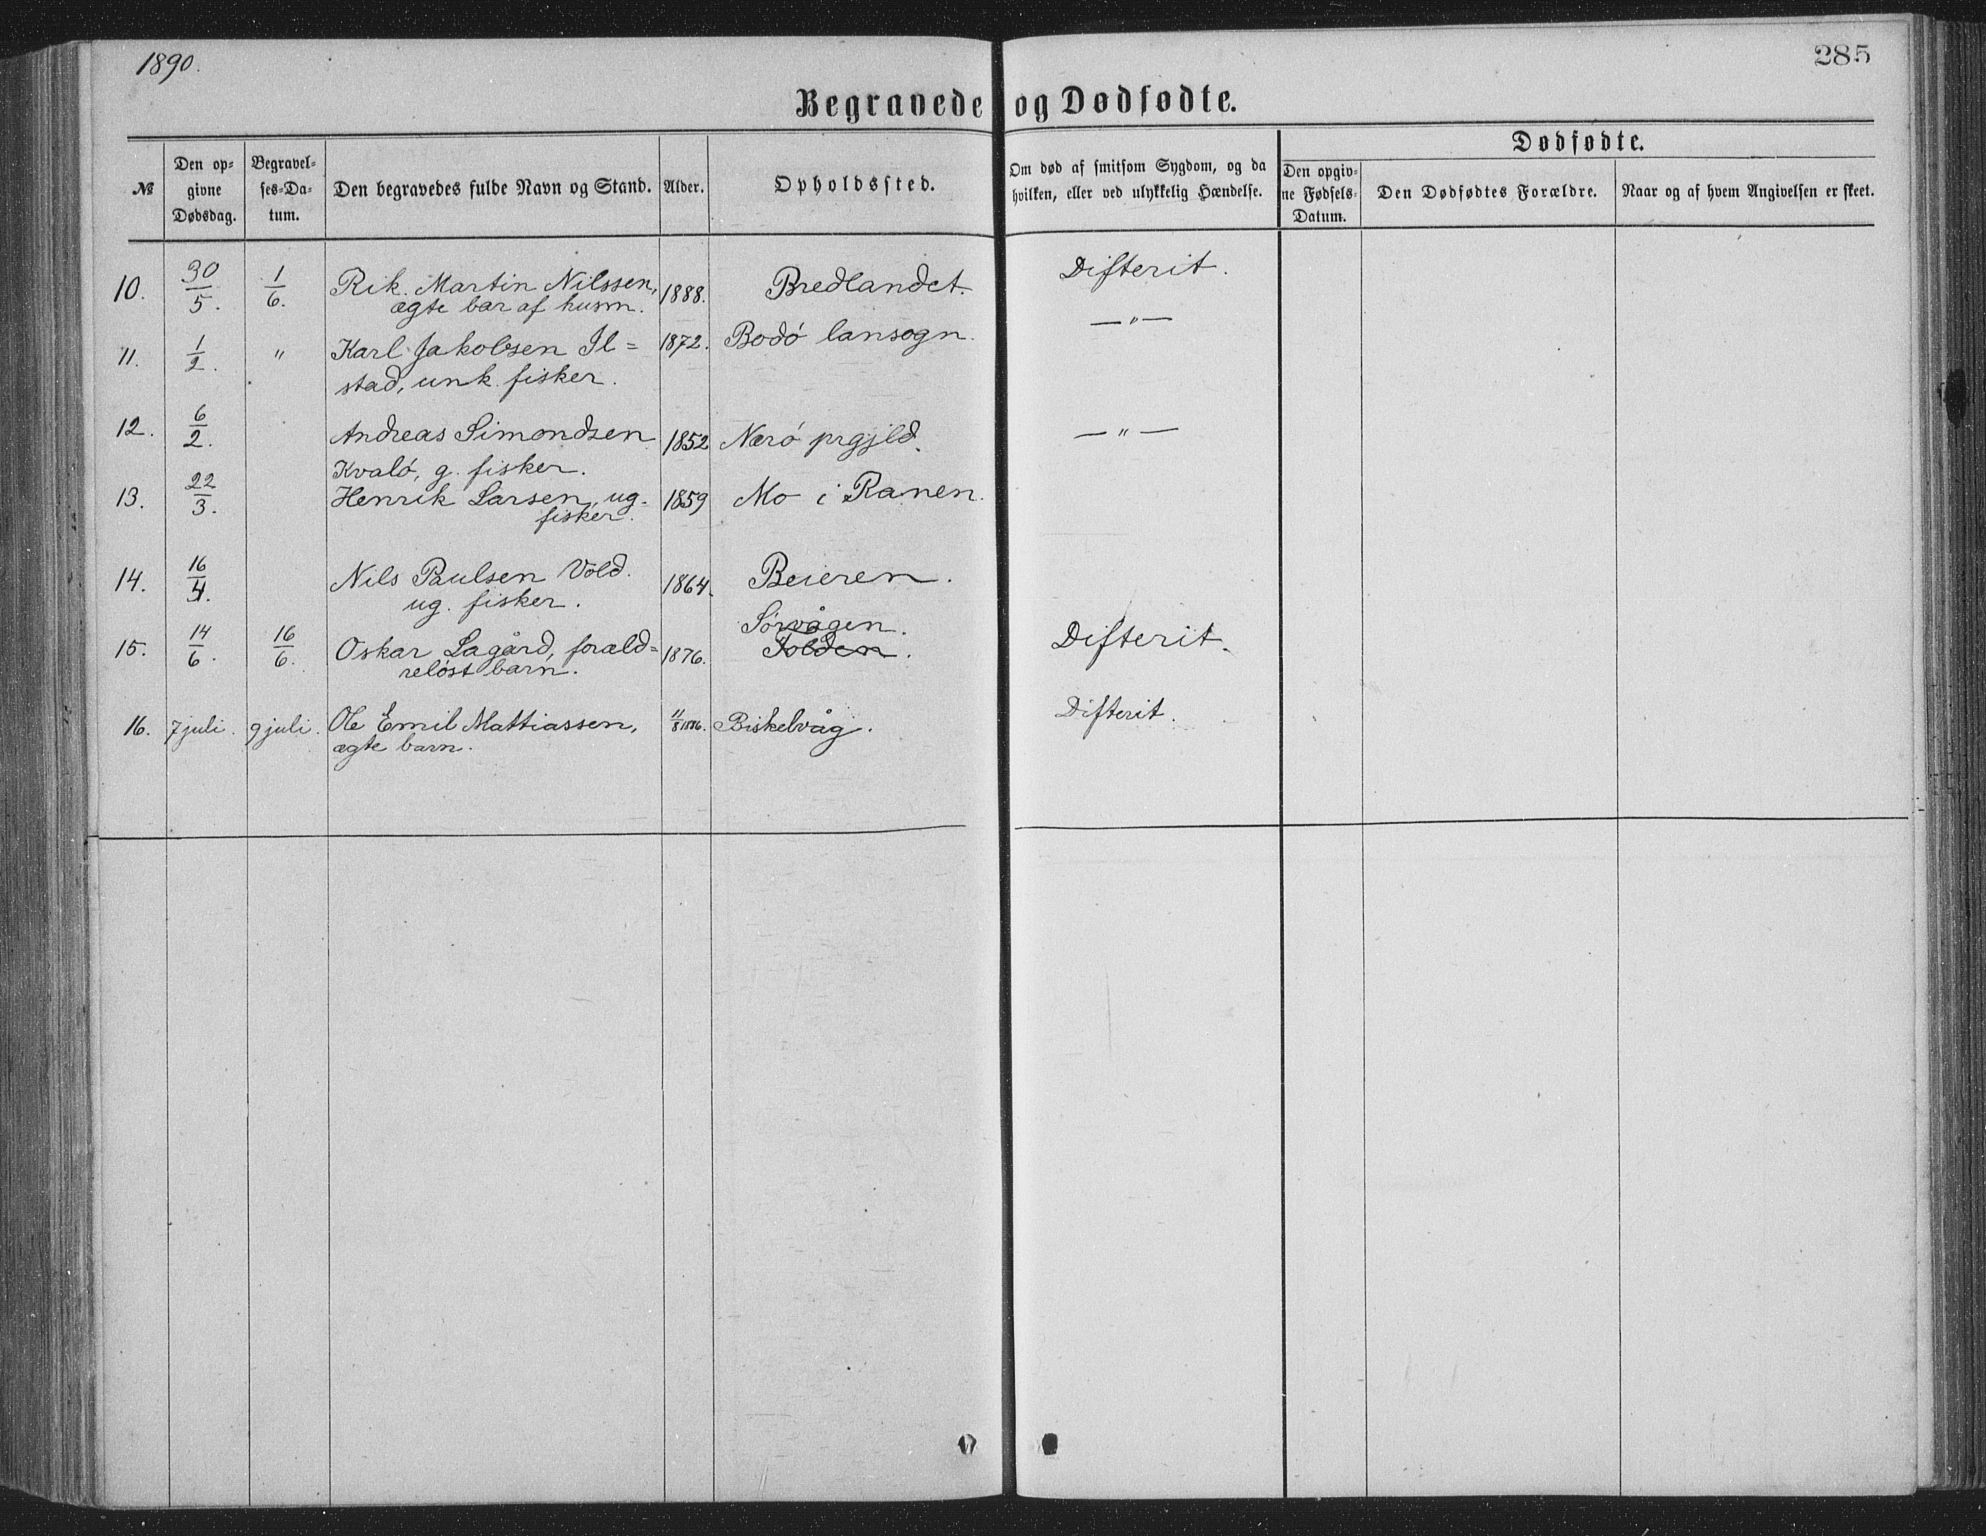 1890.
285
Begravede og Dødfødte.
№
Den op-
givne
Dødsdag.
Begravel-
ses-Da-
tum.
Den begravedes fulde Navn og Stand.
Alder.
Opholdssted.
Om død af smitsom Sygdom, og da
hvilken, eller ved ulykkelig Hændelse.
Dødfødte.
Den opgiv-
ne Fødsels-
Datum.
Den Dødfødtes Forældre.
Naar og af hvem Angivelsen er skeet.
10. 30/5. 1/6. Rik. Martin Nilssen, 1888. Bredlandet. Difterit.
ægte bar af husm.
11. 1/2. " Karl Jakobsen Il= 1872. Bodó lansogn. —"—
stad, unk. fisker.
12. 6/2. Andreas Simondsen 1852 Næró prgjld. —"—
Kvaló, g. fisker.
13. 22/3. Henrik Larsen, ug. 1859 Mo i Ranen.
fisker.
14. 16/4. Nils Paulsen Vold. 1864. Beieren.
ug. fisker.
Sórvågen.
15. 14/6. 16/6. Oskar Lagård, foræld= 1876. Folden. Difterit.
relóst barn.
16. 7 juli. 9 juli. Ole Emil Mattiassen, 11/8 1876. Biskelvåg. Difterit.
ægte barn.